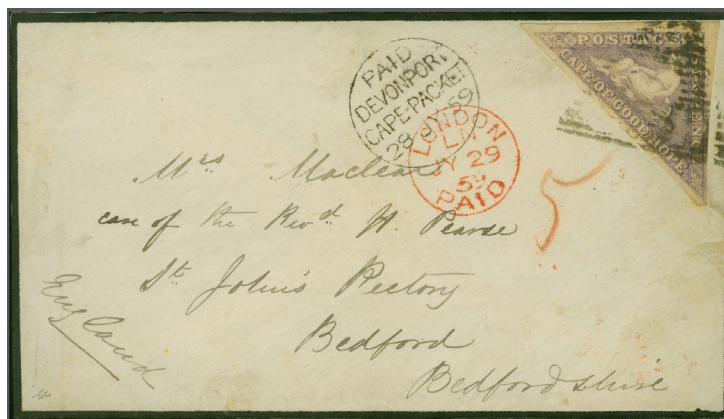 POSTAGE
CAPE OF GOOD HOPE
PAID
DEVONPORT
CAPE-PACKET
28 JY 59
LONDON
JY 29
59
PAID
5
Mrs Maclear
care of the Revd H. Pearse
St. John's Rectory
Bedford
Bedfordshire
England